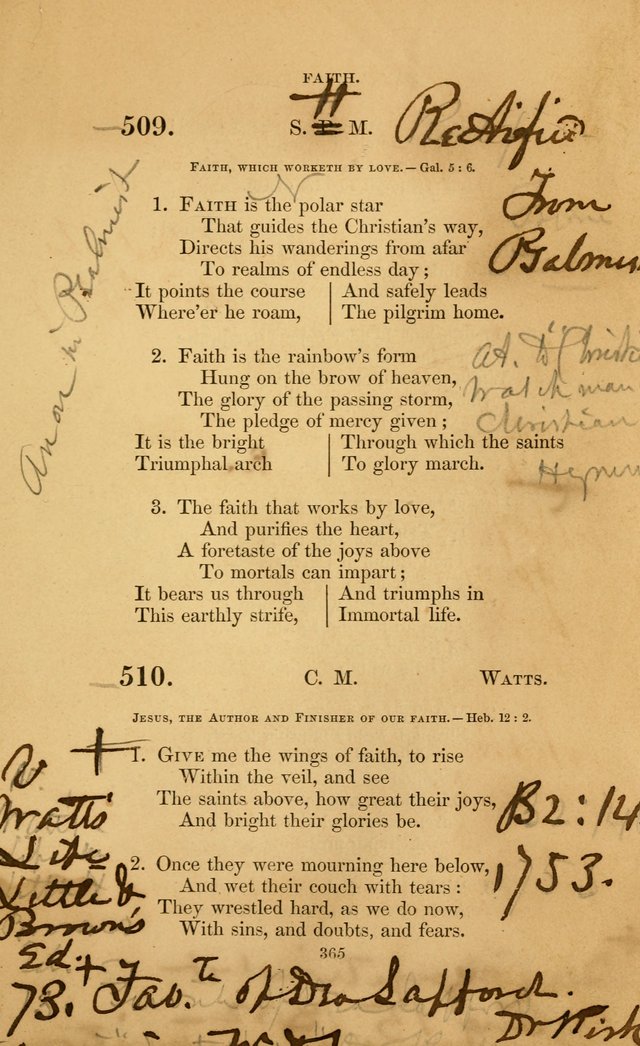 FAITH.
509. S. P. M.
H
Rectified
From
Psalmis
FAITH, WHICH WORKETH BY LOVE.—Gal. 5 : 6.
1. FAITH is the polar star
That guides the Christian's way,
Directs his wanderings from afar
To realms of endless day;
It points the course | And safely leads
Where'er he roam, | The pilgrim home.
Anon in Psalmist
2. Faith is the rainbow's form
Hung on the brow of heaven,
The glory of the passing storm,
The pledge of mercy given;
It is the bright | Through which the saints
Triumphal arch | To glory march.
Watchman
Christian
3. The faith that works by love,
And purifies the heart,
A foretaste of the joys above
To mortals can impart;
It bears us through | And triumphs in
This earthly strife, | Immortal life.
510. C. M. WATTS.
JESUS, THE AUTHOR AND FINISHER OF OUR FAITH.—Heb. 12 : 2.
1. GIVE me the wings of faith, to rise
Within the veil, and see
The saints above, how great their joys,
And bright their glories be.
2. Once they were mourning here below,
And wet their couch with tears :
They wrestled hard, as we do now,
With sins, and doubts, and fears.
V +
Watts'
Little &
Brown's
Ed. +
B2:14
1753.
365
73. Favte of Dea Safford.
Dr Kirk